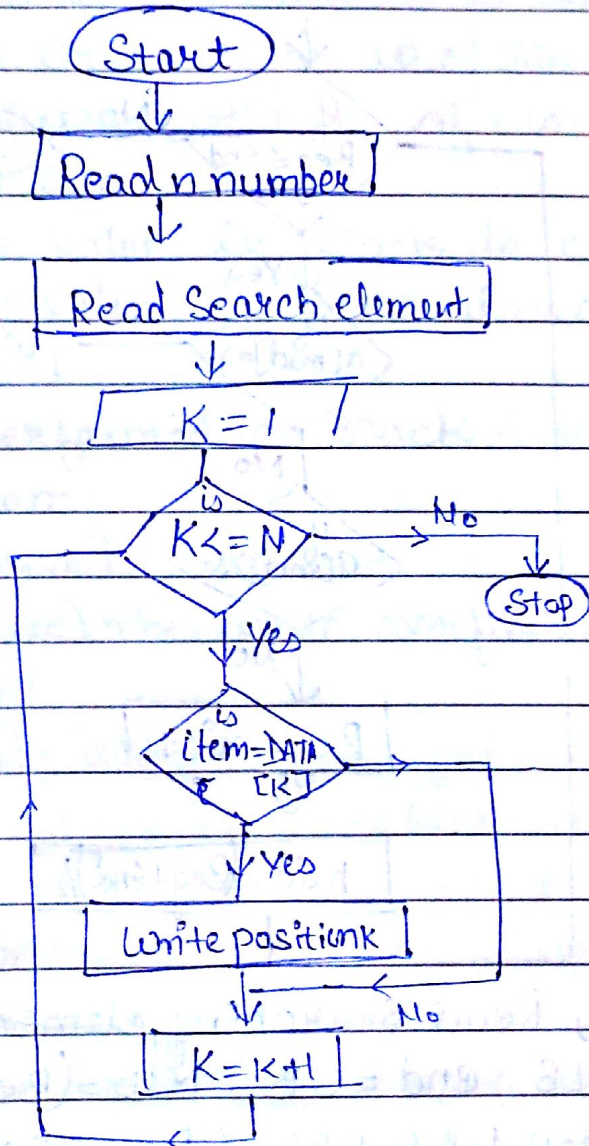 Start
Read n number
Read Search element
K = 1
is
K <= N
No
Stop
Yes
is
item = DATA
[K]
Yes
Write position K
No
K = K+1